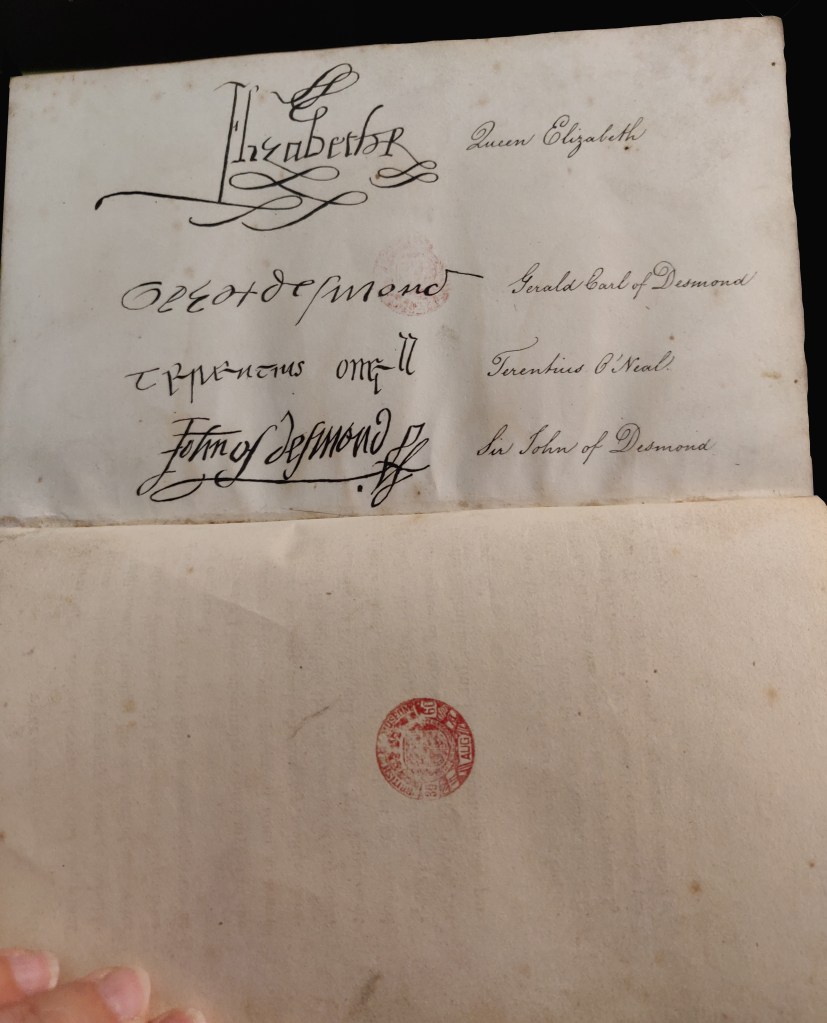 Elizabeth R Queen Elizabeth
Gerot desmond Gerald Earl of Desmond
Terentius oneyll Terentius O'Neal.
John of desmond Sir John of Desmond
BRITISH MUSEUM
AUG